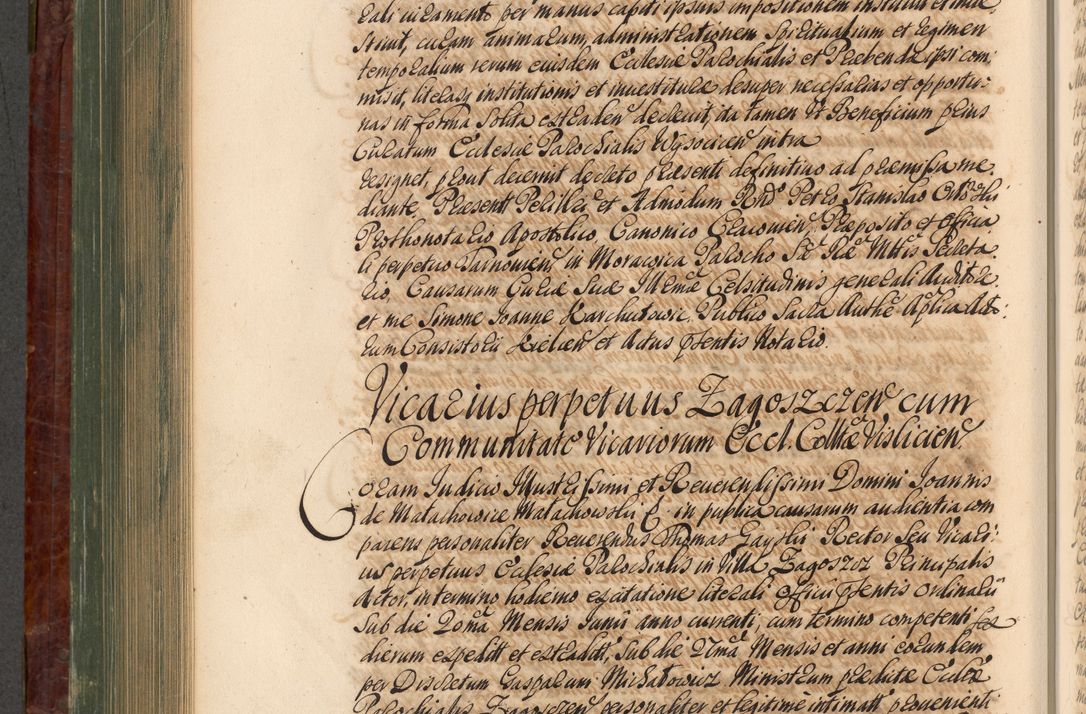 tali iuramento per manus capiti ipsius impositionem instituit et inue
stivit, curam animarum, administrationem Spiritualium et regimen
temporalium rerum eiusdem Ecclesiæ Parochialis et Præbendæ ipsi com:
misit, literasq institutionis et investituræ desuper necessarias et opportu:
nas in forma solita extraden decrevit, ita tamen ut Beneficium prius
Curatum Ecclesiæ Parochialis Wysocien intra
resignet, prout decrevit decreto præsenti definitivo ad præmissa me:
diante. Præsentt Perillri et Admodum Rndo Petro Stanislao
Prothonotario Apostolico, Canonico Cracovien, Præposito et Officia
li perpetuo Tarnovien, in Morawica Parocho Sæ Ræ Mttis Secreta:
rio, Causarum Curiæ Suæ Illmæ Celsitudinis generali Auditore,
et me Simone Joanne Karchutowic, Publico Sacra Authe Aplica Acto:
rum Consistorii Kielcien et Actus pntis Notario.
Vicarius perpetuus Zagoszczen cum
Communitate Vicariorum Eccl. Collæ Vislicien
Coram Judicio Illustrissimi et Reverendissimi Domini Joannis
de Małachowice Małachowski E. in publica causarum audientia com
parens personaliter Reverendus Thomas Gayski Rector seu Vicari:
us perpetuus Ecclesiæ Parochialis in Villa Zagoszcz Principalis
Actor, in termino hodierno ex citatione literali Officii pntis Ordinarii
sub die 20ma Mensis Junii anno currenti, cum termino competenti sex
dierum expeditt et extraditt, sub die 27ma Mensis et anni eorundem
per Discretum Gasparum Michałowicz Ministrum prædictæ Ecclæ
Parochialis Zagoszczen personaliter et legitime intimatt provenienti